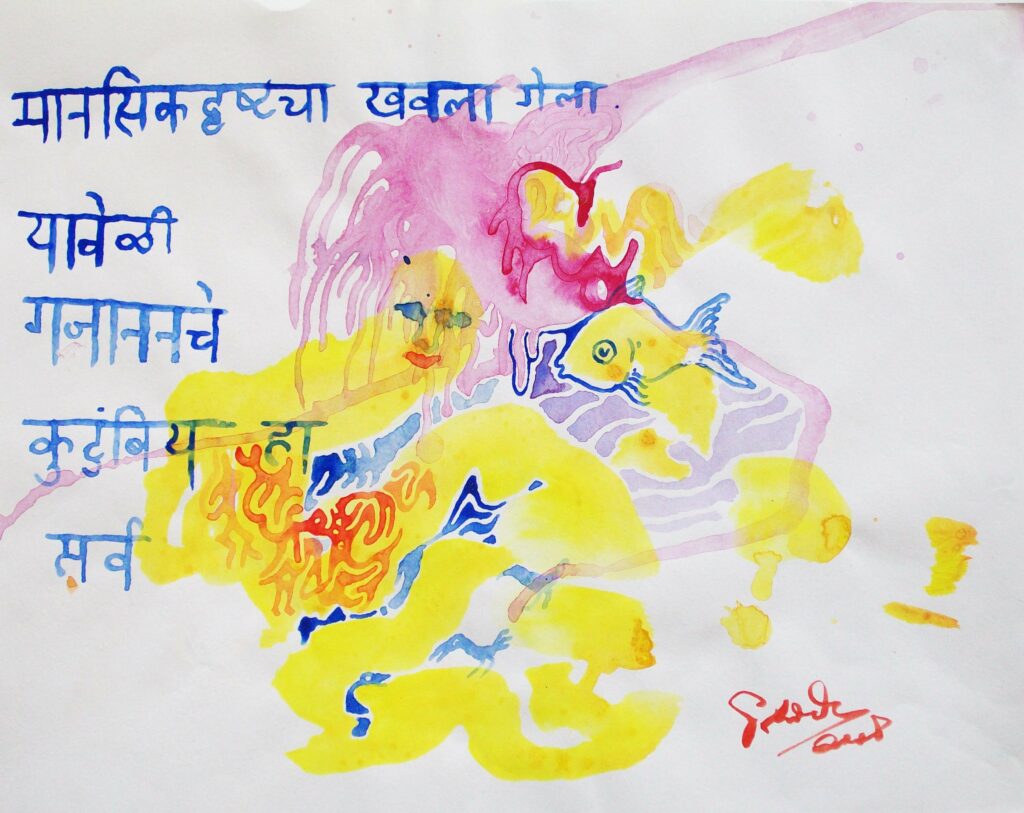 मानसिकदृष्टचा खवला गेला.
यावेळी
गजाननचे
कुटुंबिय हा
सर्व